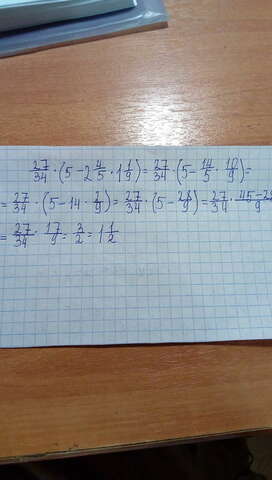 27/34 · (5 - 2 4/5 · 1 1/9) = 27/34 · (5 - 14/5 · 10/9) =
= 27/34 · (5 - 14 · 2/9) = 27/34 · (5 - 28/9) = 27/34 · 45-28/9
= 27/34 · 17/9 = 3/2 = 1 1/2